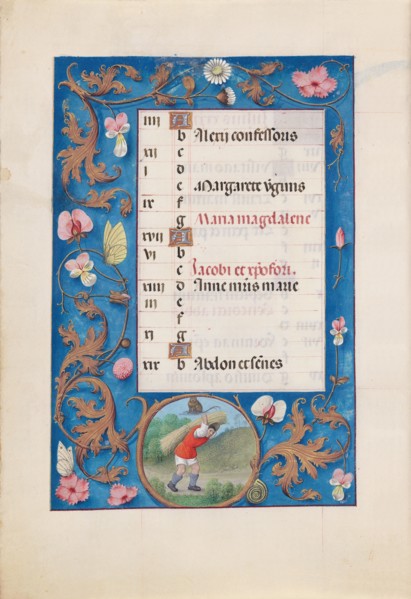 iiij A
b Alexij confessoris
xij c
i d
e Margarete v̄ginis
ix f
g Maria magdalene
xvij A
vi b
c Jacobi et xpofori.
xiiij d Anne mr̄is marie
iij e
f
xi g
A
xix b Abdon et senes